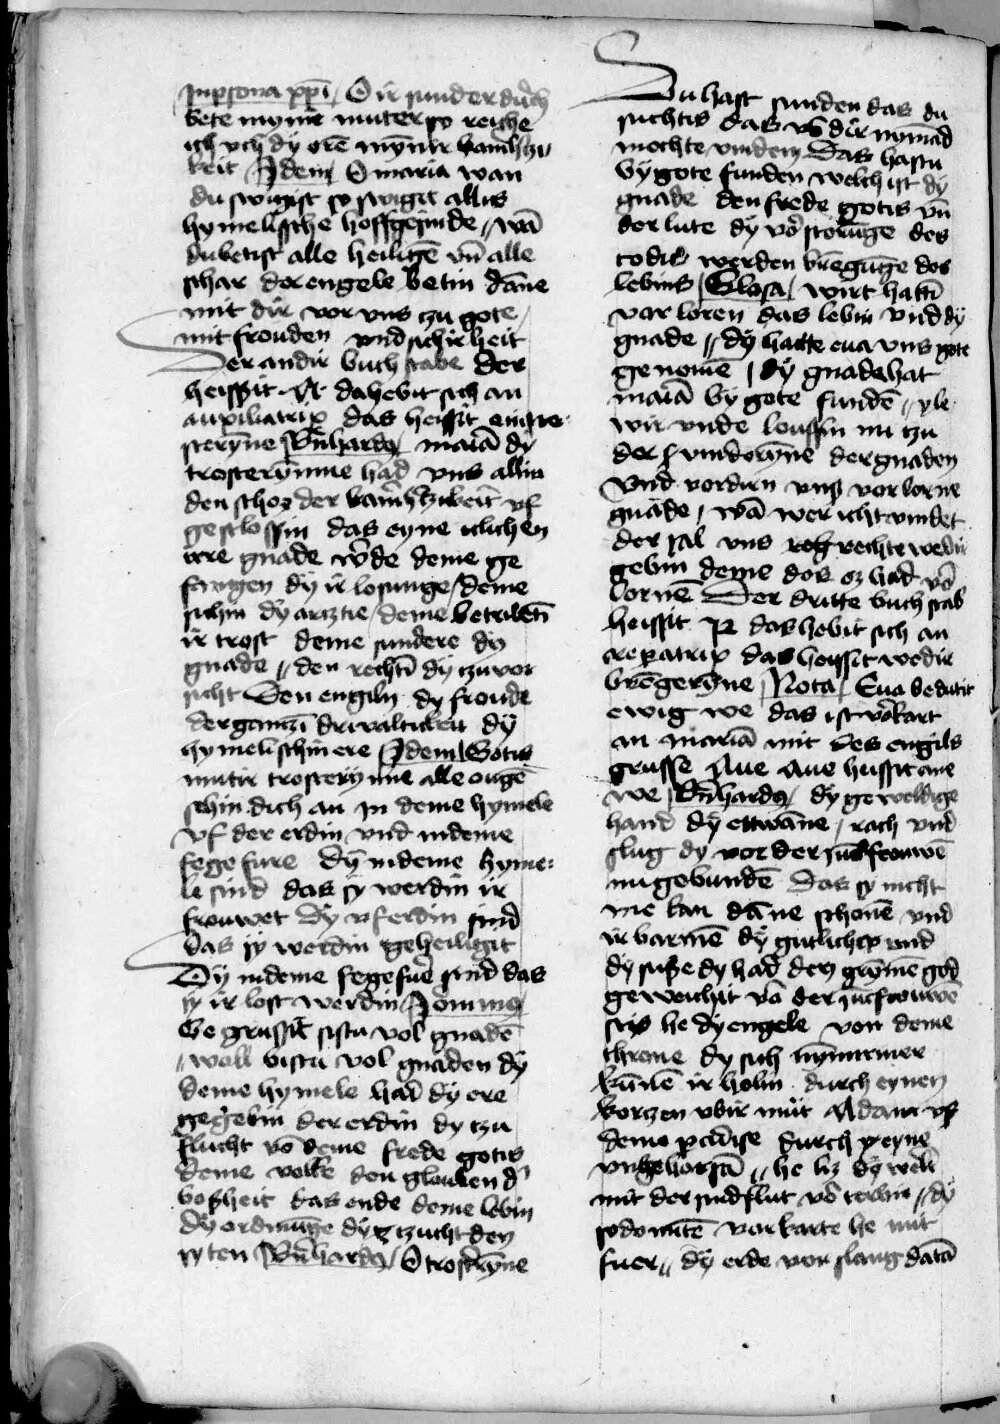 In persona xpi / O ir sunder durch
bete myner muter so reiche
ich uch dy ore myner barmhtzi
keit / Idem / O maria wan
du swigist so swigit allis
hymelissche hoffgesinde // wā
du betist alle heiligē vn̄ alle
schar der engele betin dāne
mit dir vor vns tzu gote
mit frouden vnd sichirheit
Der andir buchstabe der
heissit A dahebit sich an
auxiliatrix das heissit eintro
steryñe / Bñhardꝰ / maiā dy
trosterȳnne had vns allin
den schos der barmhtzikeit vf
geslossin das eyne iclichen
ire gnade w̄de deme ge
fangen dy ir losunge / deme
sichin dy arcztie / deme betrubetī
ir trost deme sundere dy
gnade // den rechtī dy tzuvor
sicht Den engiln dy froude
der gantzī drivaltikeit dy
hymelischin ere / Idem / Gotis
mutir trosterynne alle ougē
sehin dich an In deme hymele
vf der erdin vnd in deme
fegefure Dy in deme hyme
le sind das sy werdin ir
frouwet Dy uf erdin sind
das sy werdin geheiligit
Dy in deme fegefuer sind das
sy ir lost werdin /
Gegrussit sistu vol gnadē
/ woll bistu vol gnaden dy
deme hymele had dy ere
gegebin der erdin dy tzu
flucht vō deme frede gotis
deme volke den glouben d'
bosheit das ende deme lebin
Dy ordnūge dy tzucht den
syten / Bñhardꝰ / O trosterȳne
Du hast funden das du
suchtis das vō dir nymād
mochte vinden Das hastu
by gote funden welch ist dy
gnade den frede gotis vn̄
der lute dy vorstorūge des
todis werden brēgūge des
lebins / Glosa / wirt hattī
vorloren das lebin vnd dy
gnade // dy hatte eua vns gote
genomē / dy gnade hat
maiā by gote fundē // yle
wir vnde louffin nu tzu
der vinderȳne der gnaden
vnd vordirn vns vorlorne
gnade / wā wer icht vindet
der sal vns rechte wedir
gebin deme der ez had vor
lornē Der dritte buchstab
heissit R das hebit sich an
reparatrix das heissit wedir
brēgerȳne / Nota / Eua bedutit
ewig we das ist vorkart
an mariā mit des engils
grusse Aue Aue heissit ane
we / Bñhardꝰ / dy geweldige
hand dy ettwāne / rach vnd
slug dy vor der jucfrouwē
nu gebundē das sy nicht
me kan dāne schonē vnd
ir barmē dy gutlichz vnd
dy suße dy had den grȳmē god
geweichit vō der jucfrouwē
stis he dy engele von deme
throne dy sich nȳmmer
kūnē ir holin durch eynen
kortzen vbir mut Adam vs
deme padise durch eyne
vngehorsā // he liz dy welt
mit der sindflut vortribin // dy
sodomitē vorkarte he mit
fuer // dy erde vorslang datā